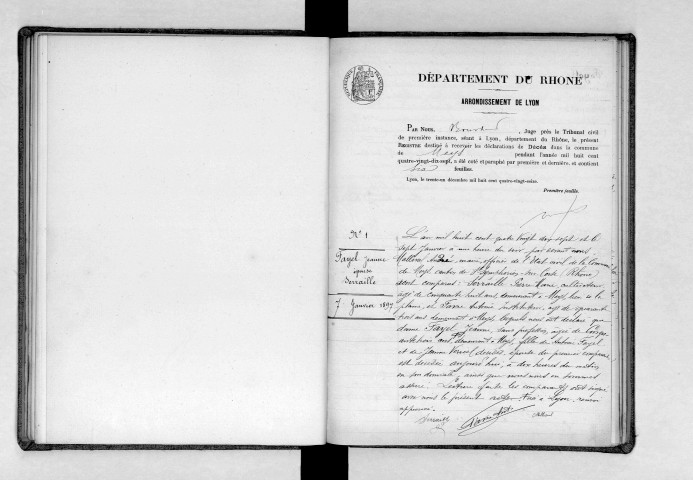 DÉPARTEMENT DU RHONE
ARRONDISSEMENT DE LYON
PAR NOUS, , Juge près le Tribunal civil
de première instance, séant à Lyon, département du Rhône, le présent
REGISTRE destiné à recevoir les déclarations de Décès dans la commune
de Meys pendant l'année mil huit cent
quatre-vingt-dix-sept, a été coté et paraphé par première et dernière, et contient
six feuilles.
Lyon, le trente-un décembre mil huit cent quatre-vingt-seize.
Première feuille.
N° 1
Fayel Jeanne
épouse
Serraille
7 Janvier 1897
L'an mil huit cent quatre vingt dix sept et le
sept Janvier à une heure du soir par devant nous
maire, officier de l'état civil de la Commune
de Meys canton de St Symphorien sur Coise (Rhône)
sont comparus: Serraille Pierre Marie cultivateur,
âgé de cinquante huit ans demeurant à Meys lieu de la
plaine, et Favre Antoine instituteur, âgé de quarante
trois ans demeurant à Meys lesquels nous ont déclaré que
dame Fayel Jeanne, sans profession, âgée de
ans, demeurant à Meys, fille de Antoine Fayel
et de Jeanne décédés, épouse du premier comparant
est décédée aujourd'hui, à dix heures du matin
en son domicile, ainsi que nous nous en sommes
assuré. Lecture faite les comparants ont signé
avec nous le présent acte. à Lyon, 
approuvé.
Serraille